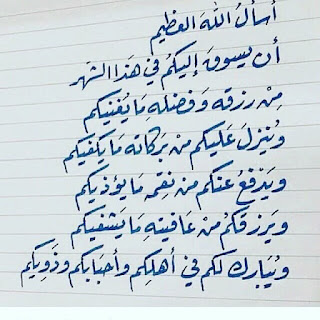 أسألُ اللهَ العظيم
أن يسوقَ إليكمُ في هَذا الشهر
مِنْ رزقه وَفضلهِ مَا يُغنيكم
ويُنزلَ عَليكم منْ بَركاته مَا يكفيكم
ويَدْفعُ عنكم من نِقمِه مَا يؤذيكم
ويَرزقكُم منْ عَافيتهِ مَا يَشفيكم
ويُبارك لكم في أهلِكم وأحبَابكم وذَويكم